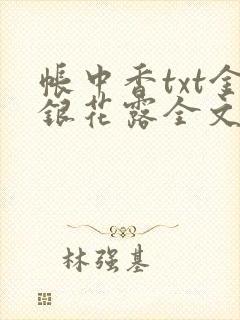 帐中香txt金
银花露全文
林强基